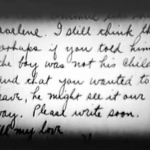 arlene. I still think th
erhaps if you told him
the boy was not his child
and that you wanted to
eave, he might see it our
way. Please write soon.
All my love